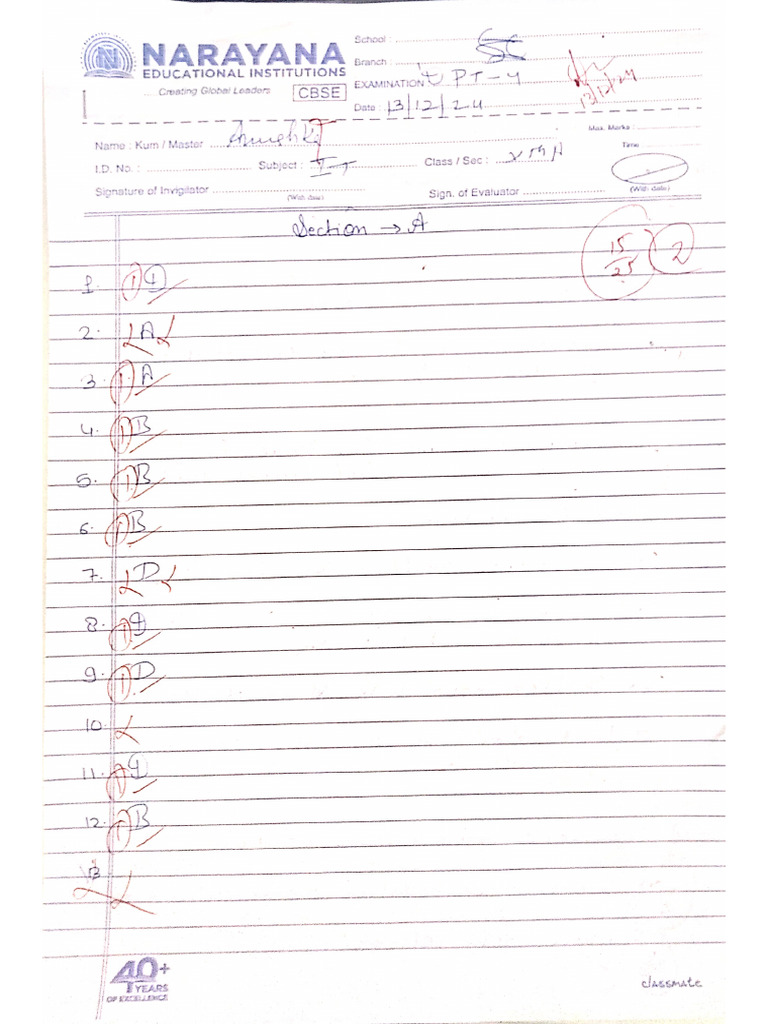 NARAYANA
EDUCATIONAL INSTITUTIONS
... Creating Global Leaders
CBSE
School :
Branch :
EXAMINATION PT-4
Date : 13/12/24
13/12/24
Max. Marks :
Name : Kum / Master
Time
I.D. No. : Subject : IT Class / Sec :
Signature of Invigilator (With date) Sign. of Evaluator (With date)
Section → A
15/25 2
1. 1
2. A
3. 1 A
4. 1 B
5. 1 B
6. 1 B
7. D
8. 1
9. 1 D
10.
11. 1
12. 1 B
13
40+
YEARS
OF EXCELLENCE
classmate